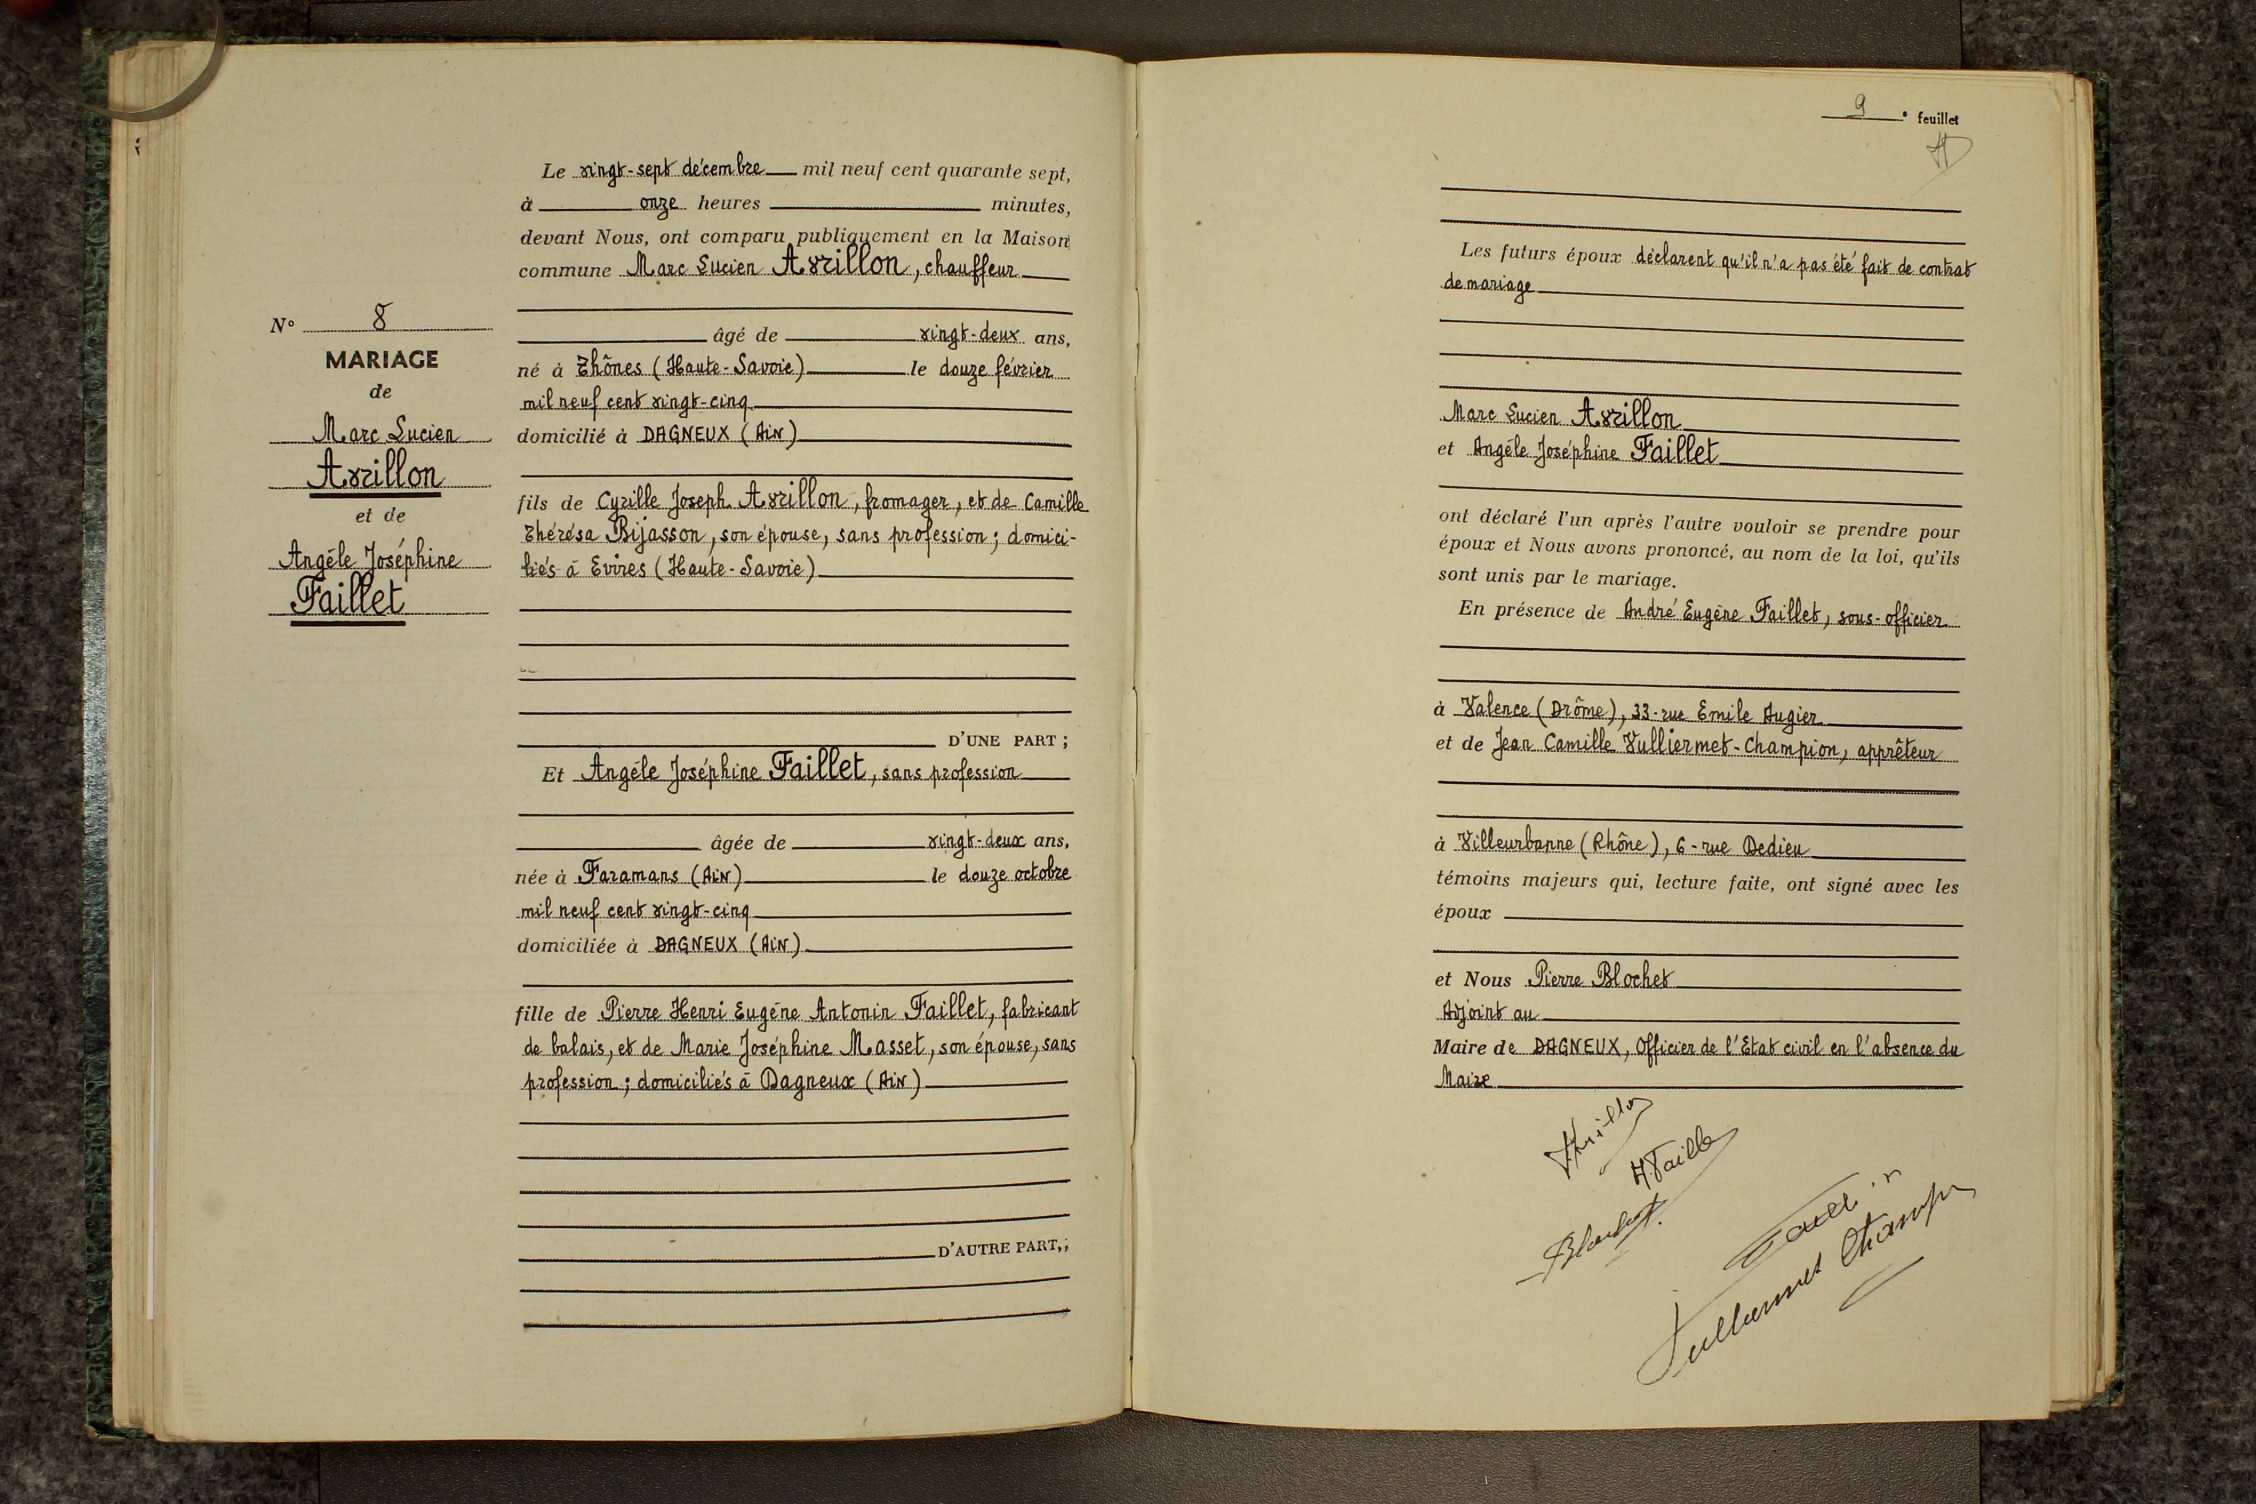 Le vingt-sept décembre mil neuf cent quarante sept,
à onze heures minutes,
devant Nous, ont comparu publiquement en la Maison
commune Marc Lucien Avrillon, chauffeur
N° 8
MARIAGE
de
Marc Lucien
Avrillon
et de
Angèle Joséphine
Faillet
âgé de vingt-deux ans,
né à Thônes (Haute-Savoie) le douze février
mil neuf cent vingt-cinq
domicilié à DAGNEUX (AiN)
fils de Cyrille Joseph Avrillon, fromager, et de Camille
Thérésa Bijasson, son épouse, sans profession; domici-
liés à Evires (Haute-Savoie)
D'UNE PART;
Et Angèle Joséphine Faillet, sans profession
âgée de vingt-deux ans,
née à Faramans (AiN) le douze octobre
mil neuf cent vingt-cinq
domiciliée à DAGNEUX (AiN)
fille de Pierre Henri Eugène Antonin Faillet, fabricant
de balais, et de Marie Joséphine Masset, son épouse, sans
profession; domiciliés à Dagneux (AiN)
D'AUTRE PART,;
9 e feuillet
Les futurs époux déclarent qu'il n'a pas été fait de contrat
de mariage
Marc Lucien Avrillon
et Angèle Joséphine Faillet
ont déclaré l'un après l'autre vouloir se prendre pour
époux et Nous avons prononcé, au nom de la loi, qu'ils
sont unis par le mariage.
En présence de André Eugène Faillet, sous-officier
à Valence (Drôme), 33-rue Emile Augier
et de Jean Camille Vulliermet-Champion, apprêteur
à Villeurbanne (Rhône), 6-rue Dedieu
témoins majeurs qui, lecture faite, ont signé avec les
époux
et Nous Pierre Blochet
Adjoint au
Maire de DAGNEUX, Officier de l'Etat civil en l'absence du
Maire
Avrillon
A Faillet
Blochet